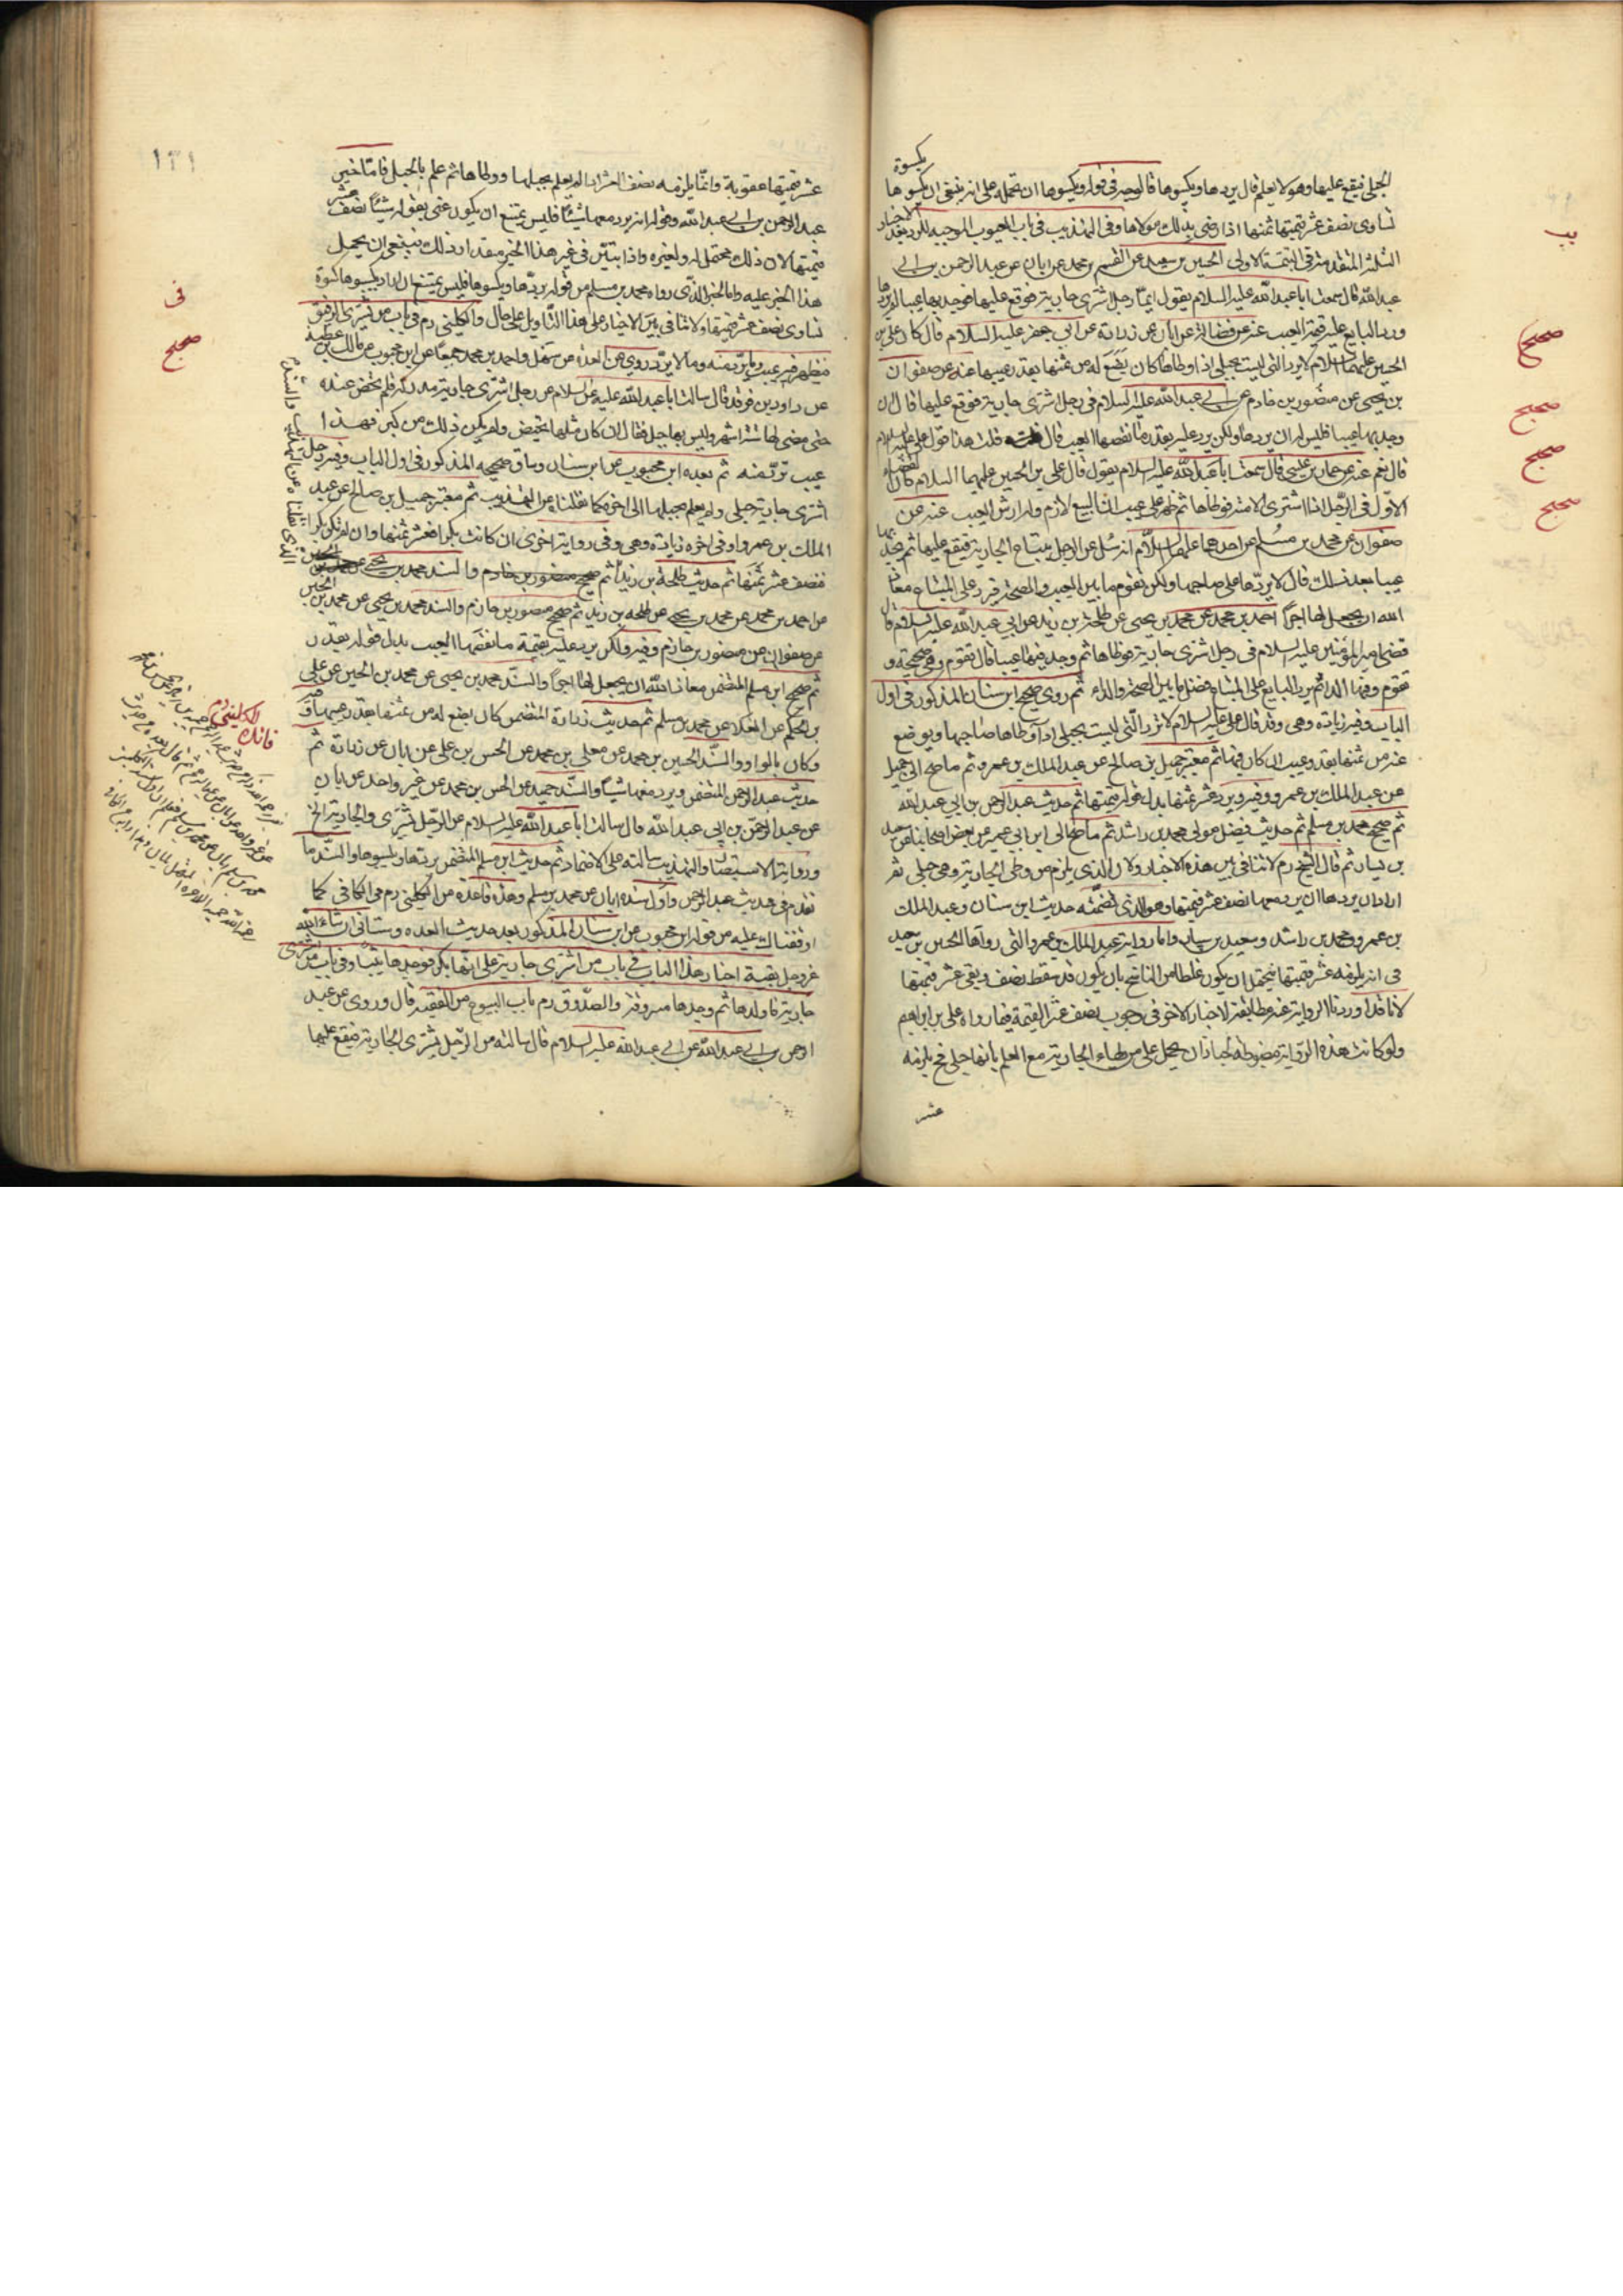 يكسوة
الحبلى فيقع عليها وهو لا يعلم قال يردها ويكسوها فالوجه في قوله ويكسوها ان تحمله على انه ينبغي ان يكسوها
تساوى نصف عشر قيمتها ثمنها اذا رضى بذلك مولاها وفى التهذيب فى باب العيوب الموجبه للرد بعد الاخبار
الثلثة المتقدمة في التتمة الاولى الحسين بن سعيد عن القسم بن محمد عن ابان عن عبد الرحمن بن ابى
عبد الله قال سمعت ابا عبد الله عليه السلام يقول ايما رجل اشترى جارية فوقع عليها فوجد بها عيبا لم يردها
ورد البايع عليه قيمة العيب عنه عن فضالة عن ابان عن زرارة عن ابى جعفر عليه السلام قال كان على بن
الحسين عليهما السلام لا يرد التى ليست بحبلى اذا وطأها كان يضع له من ثمنها بقدر عيبها عنه عن صفوان
بن يحيى عن منصور بن حازم عن ابى عبد الله عليه السلام فى رجل اشترى جارية فوقع عليها قال ان
وجد بها عيبا فليس له ان يردها ولكن يرد عليه بقدر ما نقصها العيب قال قلت هذا قول على عليه السلام
قال نعم عنه عن حماد بن عيسى قال سمعت ابا عبد الله عليه السلام يقول قال على بن الحسين عليهما السلام كان القضاء
الاول فى الرجل اذا اشترى الامة فوطأها ثم ظهر على عيب ان البيع لازم وله ارش العيب عنه عن
صفوان عن محمد بن مسلم عن احدهما عليهما السلام انه سئل عن الرجل يبتاع الجارية فيقع عليها ثم يجد بها
عيبا بعد ذلك قال لا يردها على صاحبها ولكن تقوم ما بين العيب والصحة فيرد على المبتاع معاذ
الله ان يجعل لها اجرا احمد بن محمد عن محمد بن يحيى عن طلحة بن زيد عن ابى عبد الله عليه السلام قال
قضى امير المؤمنين عليه السلام فى رجل اشترى جارية فوطأها ثم وجد فيها عيبا قال تقوم وهى صحيحة و
تقوم وفيها الداء ثم يرد البايع على المبتاع فضل ما بين الصحة والداء ثم روى صحيح ابن سنان المذكور فى اول
الباب وفيه زيادة وهى وقد قال على عليه السلام لا ترد التى ليست بحبلى اذا وطأها صاحبها ويوضع
عنه من ثمنها بقدر عيب ان كان فيها ثم معتبر جميل بن صالح عن عبد الملك بن عمرو ثم ما صح الى جميل
عن عبد الملك بن عمرو وفيه ويرد عشر ثمنها بدل قوله قيمتها ثم حديث عبد الرحمن بن ابى عبد الله
ثم صحيح محمد بن مسلم ثم حديث فضيل مولى محمد بن راشد ثم ما صح الى ابن ابى عمير عن بعض اصحابنا عن سعيد
بن يسار ثم قال الشيخ رم لا تنافى بين هذه الاخبار ولان الذى يلزم من وطى الجارية وهى حبلى ثم
اراد ان يردها ان يرد معها نصف عشر قيمتها وهو الذى تضمنه حديث ابن سنان وعبد الملك
بن عمرو ومحمد بن راشد وسعيد بن يسار واما رواية عبد الملك بن عمرو التى رواها الحسين بن سعيد
فى انه يلزمه عشر قيمتها فيحتمل ان يكون غلطا من الناسخ بان يكون قد سقط نصف وبقى عشر قيمتها
لانا قد اوردنا الرواية عنه مطابقة للاخبار الاخر فى وجوب نصف عشر القيمة فيما رواه على بن ابراهيم
ولو كانت هذه الرواية مضبوطه لجاز ان يحمل على من يطأ الجارية مع العلم بانها حبلى فح يلزمه
عشر
صحيح
صحيح
صحيح
صحيح
١٣١
عشر قيمتها عقوبة وانما يلزمه نصف العشر اذا لم يعلم بحبلها ووطأها ثم علم بالحبل فاما خبر
عبد الرحمن بن ابى عبد الله وقوله انه يرد معها شيئا فليس يمتنع ان يكون عنى بقوله شيئا نصف عشر
قيمتها لان ذلك محتمل له ولغيره واذا بتبين فى غير هذا الخبر مقدار ذلك فينبغى ان يحمل
هذا الخبر عليه واما الخبر الذى رواه محمد بن مسلم من قوله يردها ويكسوها فليس يمتنع ان اراد يكسوها كسوة
تساوى نصف عشر قيمتها ولا تنافى بين الاخبار على هذا التأويل على حال والكلينى رم فى باب من يشترى الرقيق
فيظهر فيه عيب وما يرد منه وما لا يرد روى عن العدة عن سهل واحمد بن محمد جميعا عن ابن محبوب عن مالك بن عطية
عن داود بن فرقد قال سالت ابا عبد الله عليه السلام عن رجل اشترى جارية مدركة فلم تحض عنده
حتى مضى لها ستة اشهر وليس بها حبل فقال ان كان مثلها تحيض ولم يكن ذلك من كبر فهذا
عيب ترد منه ثم بعده ابن محبوب عن ابن سنان وساق صحيحه المذكور فى اول الباب وفيه رجل
اشترى جارية حبلى ولم يعلم بحبلها الى اخره كما نقلنا عن التهذيب ثم معتبر جميل بن صالح عن عبد
الملك بن عمرو وفى اخره زيادة وهى وفى رواية اخرى ان كانت بكرا فعشر ثمنها وان لم تكن بكرا
فنصف عشر ثمنها ثم حديث طلحة بن زيد ثم صحيح منصور بن حازم والسند محمد بن يحيى
عن احمد بن محمد عن محمد بن يحيى عن طلحه بن زيد ثم صحيح منصور بن حازم والسند محمد بن يحيى عن محمد بن الحسين
عن صفوان عن منصور بن حازم وفيه ولكن يرد عليه بقيمة ما نقصها العيب بدل قوله بقدر
ثم صحيح ابن مسلم المتضمن معاذ الله ان يجعل لها اجرا والسند محمد بن يحيى عن محمد بن الحسين عن على
بن الحكم عن العلاء عن محمد بن مسلم ثم حديث زرارة المتضمن كان يضع له من ثمنها بقدر عيبها
وكان بالواو والسند الحسين بن محمد عن معلى بن محمد عن الحسن بن على عن ابان عن زرارة ثم
حديث عبد الرحمن المتضمن ويرد معها شيئا والسند حميد عن الحسن بن محمد عن غير واحد عن ابان
عن عبد الرحمن بن ابى عبد الله قال سالت ابا عبد الله عليه السلام عن الرجل يشترى والجارية الخ
ورواية الاستبصار والتهذيب سالته على الاضمار ثم حديث ابن مسلم المتضمن يردها ويكسوها والسند ما
تقدم فى حديث عبد الرحمن واول سنده ابان عن محمد بن مسلم وهذه قاعدة من الكلينى رم فى الكافى كما
اوقفناك عليه من قوله ابن محبوب عن ابن سنان المذكور بعد حديث العدة وستأتى ان شاء الله
عز وجل بقية اخبار هذا الباب فى باب من اشترى جارية على انها بكر فوجدها ثيبا وفى باب من اشترى
جارية فاولدها ثم وجدها مسروقة والصدوق رم باب البيوع من الفقيه قال وروى عن عبد
الرحمن بن ابى عبد الله عن ابى عبد الله عليه السلام قال سالته عن الرجل يشترى الجارية فيقع عليها
فى
صحيح
الذى نقلناه عن التهذيب والسند